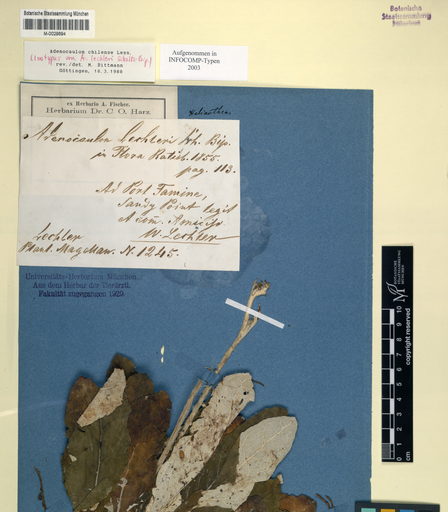 Botanische Staatssammlung München
M-0029894
Adenocaulon chilense Less.
(Isotypus von A. lechleri Schultz Bip.)
rev./det. M. Dittmann
Göttingen, 10.3.1988
Aufgenommen in
INFOCOMP-Typen
2003
Botanische
Staatssammlung
MÜNCHEN
ex Herbario A. Fischer.
Herbarium Dr. C. O. Harz.
Adenocaulon Lechleri Sch. Bip.
in Flora Ratisb. 1855.
pag. 113.
Ad Port Famine,
Sandy Point legit
W. Lechler
Lechler
Plant. Magellan. N. 1245.
Universitäts-Herbarium München
Aus dem Herbar der Tierärztl.
Fakultät zugegangen 1929.
BOTANISCHE STAATSSAMMLUNG MÜNCHEN
copyright reserved
0 1 2 3 4 5 6 7 8 9 10
cm